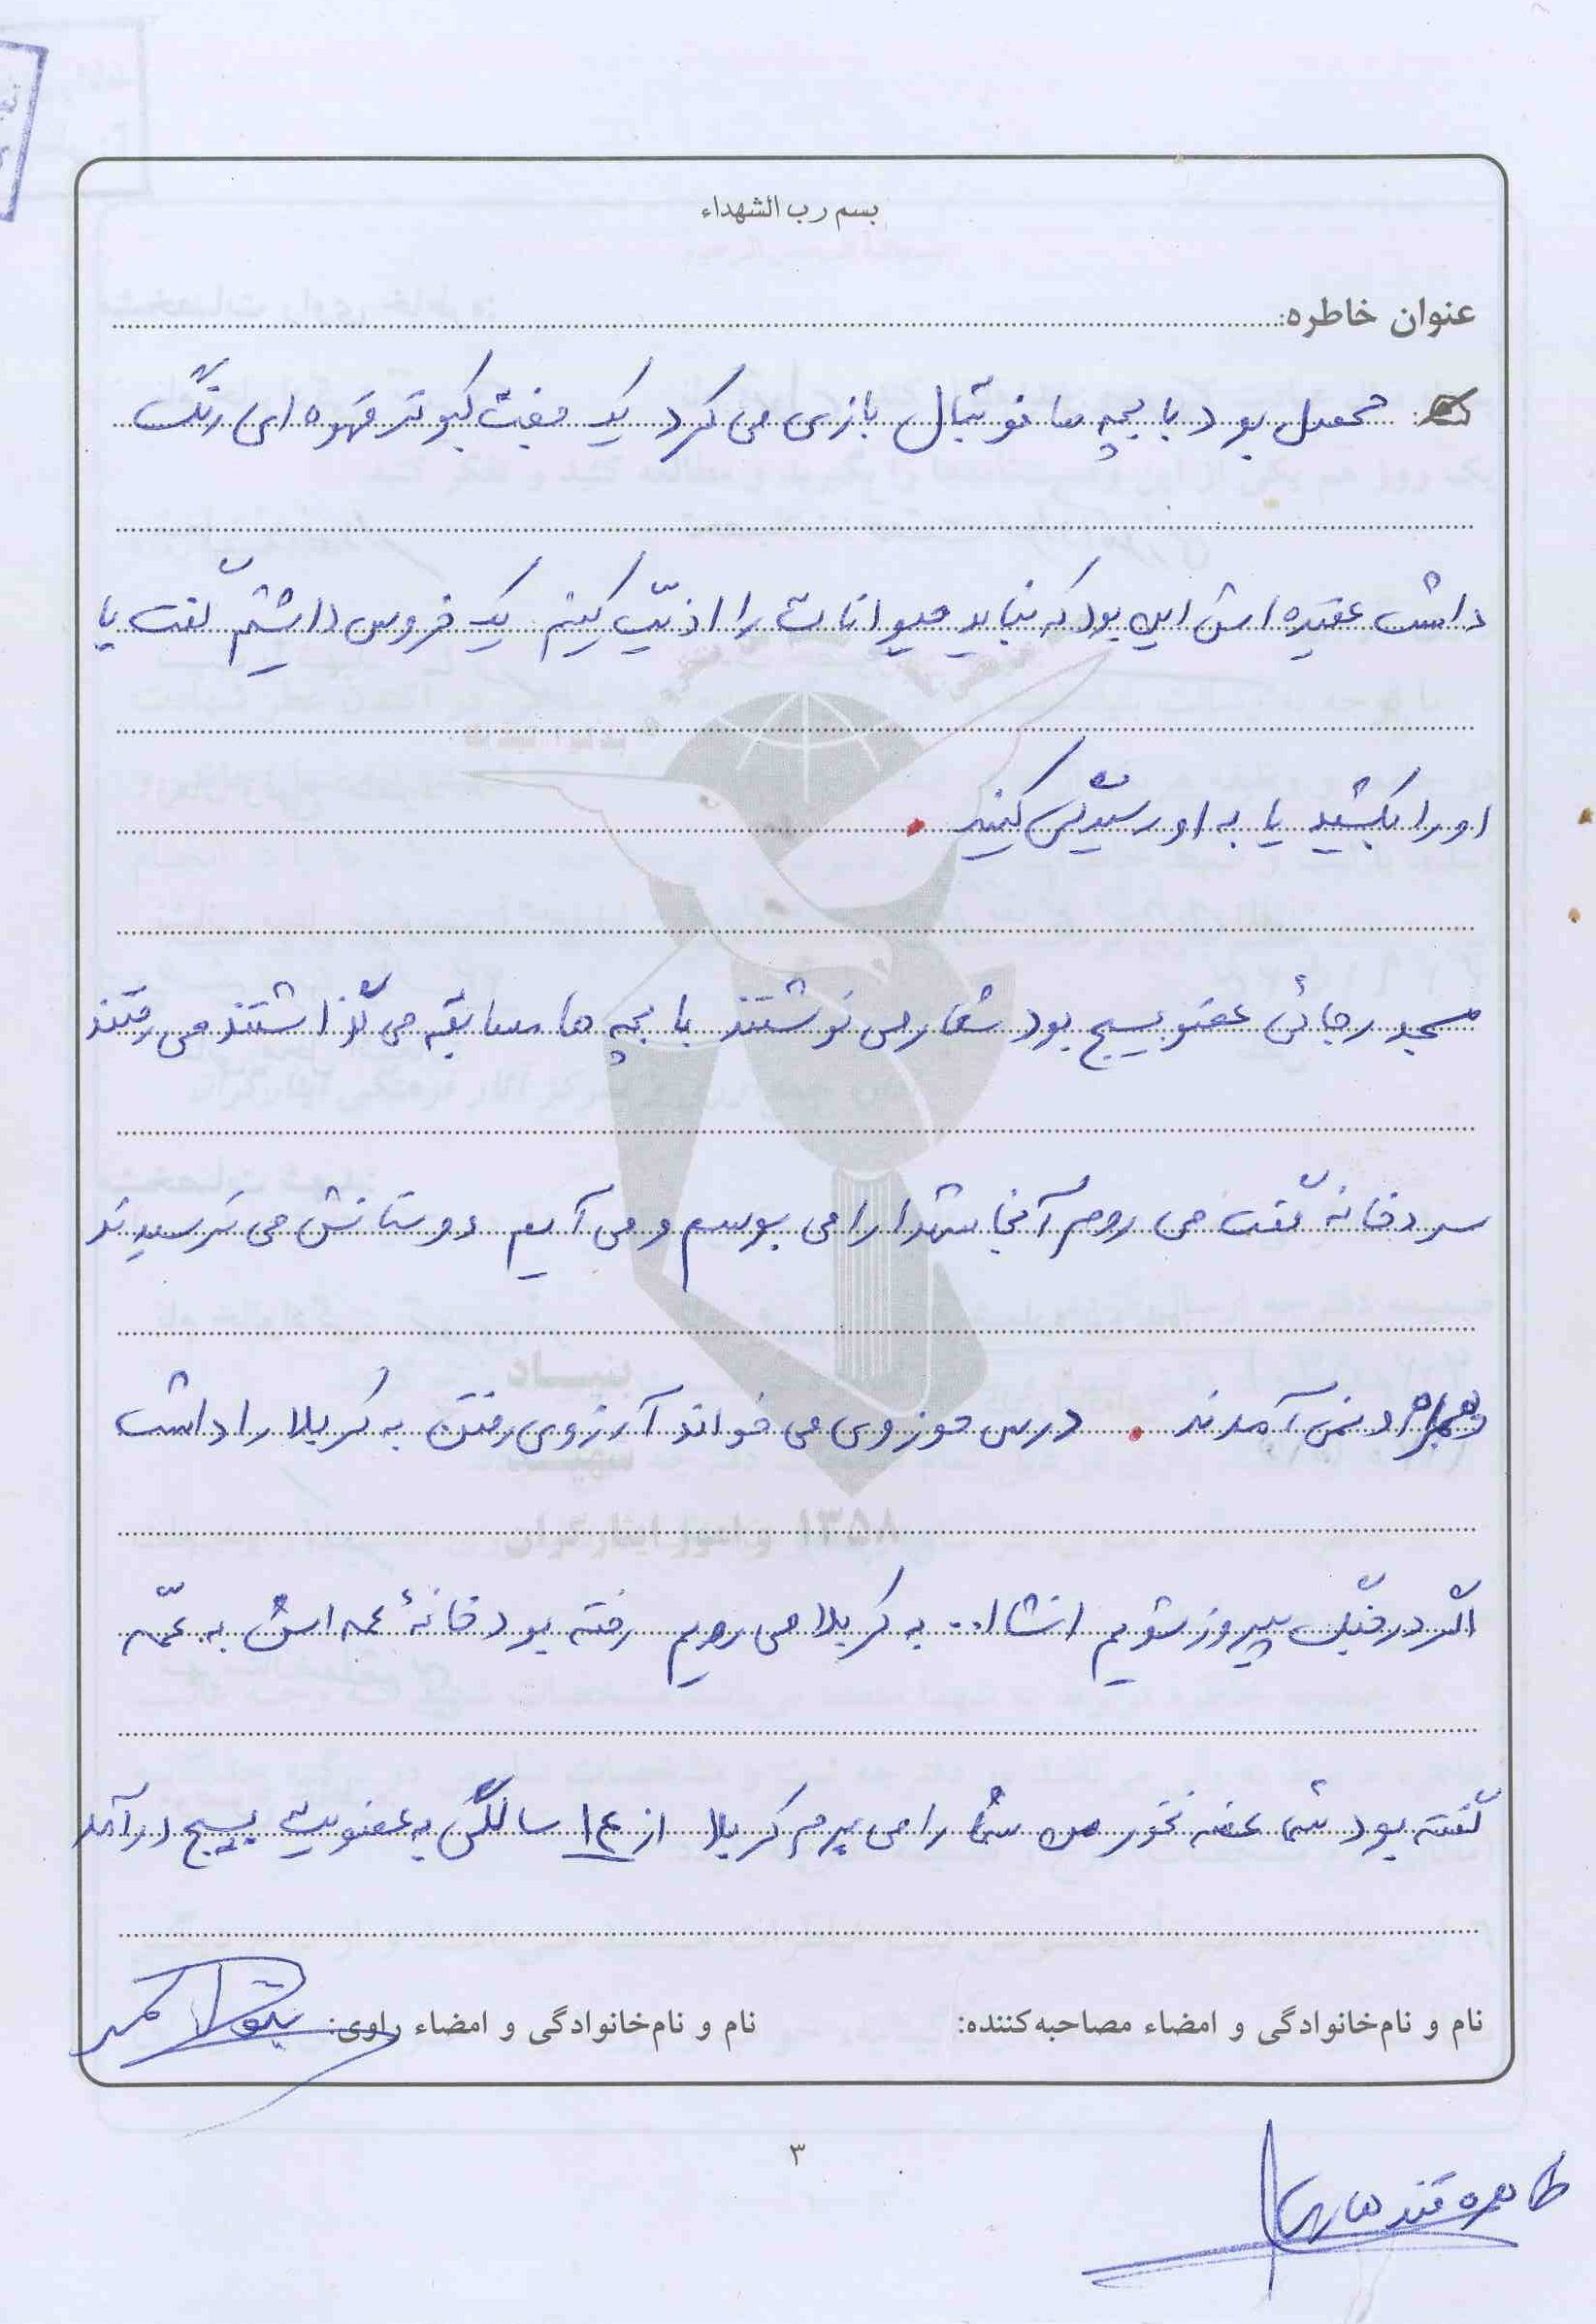 بسم رب الشهداء
عنوان خاطره:
محصل بود با بچه ها فوتبال بازی می کرد یک جفت کبوتر قهوه ای رنگ
داشت عقیده اش این بود که نباید حیوانات را اذیّت کنیم یک خروس داشتم گفت یا
او را بکشید یا به او رسیدگی کنید.
مسجد رجائی عضو بسیج بود شعار می نوشتند با بچه ها مسابقه می گذاشتند می رفتند
سردخانه گفت می روم آنجا شهدا را می بوسم و می آیم دوستانش می ترسیدند
همراه او نمی آمدند. درس حوزوی می خواند آرزوی رفتن به کربلا را داشت
اگر در جنگ پیروز شویم انشاا.. به کربلا می رویم رفته بود خانهٔ عمه اش به عمّه
گفته بود شما غصه نخور من شما را می برم کربلا از ۱۴ سالگی به عضویت بسیج درآمد
نام و نام‌خانوادگی و امضاء مصاحبه‌کننده:
نام و نام‌خانوادگی و امضاء راوی:
۳
طاهره قندهاری
بنیاد
شهید
۱۳۵۸ و امور ایثارگران